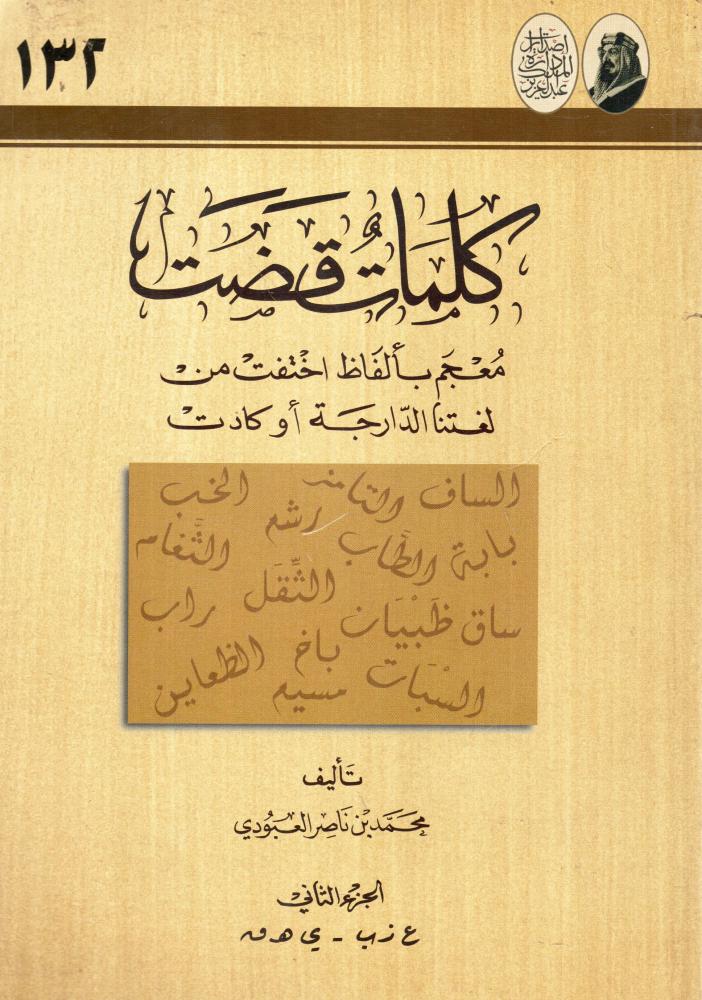 ١٣٢
إصدارات
الدارة
الملك
عبدالعزيز
كلمات قضَت
مُعْجَم بألفَاظ اخْتفت من
لغتنا الدّارجَة أو كادت
الساف والتامن الخب
بابة الطاب رشع الثّغام
ساق ظَبْيَان الثِّقَل راب
السْبَات باخ الظعاين
مسيع
تأليف
محمَّد بن ناصر العبُودي
الجزء الثاني
ع ز ب - ي هـ ق